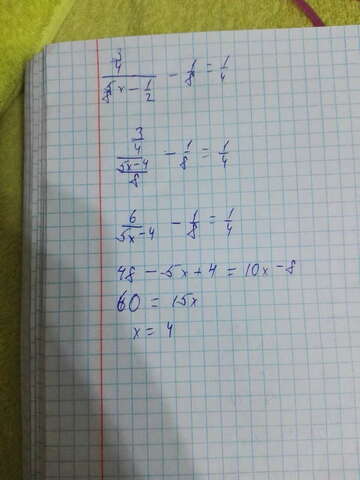 (3/4)/(5/8 x − 1/2) − 1/8 = 1/4
(3/4)/((5x−4)/8) − 1/8 = 1/4
6/(5x−4) − 1/8 = 1/4
48 − 5x + 4 = 10x − 8
60 = 15x
x = 4